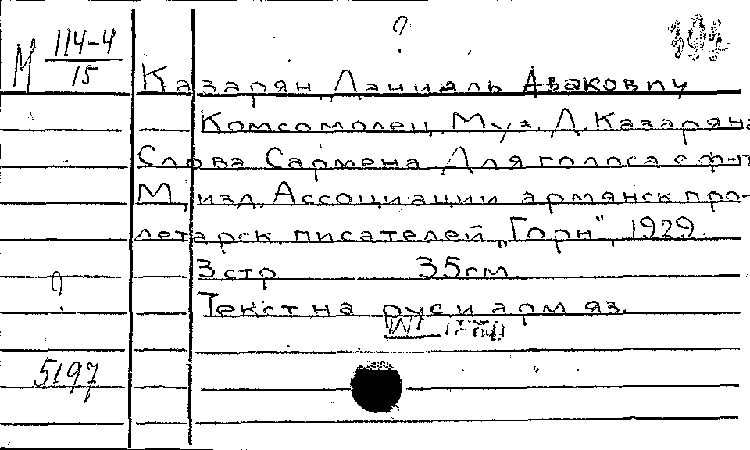 ?
М 114-4/15
Казарян, Даниэль Авакович
Комсомолец. Муз. Д. Казаряна
Слова Сармена. Для голоса с ф-п.
М., изд. Ассоциации армянск про-
летарск писателей „Горн", 1929.
3 стр 35 см.
?
Текст на рус и арм яз.
5197